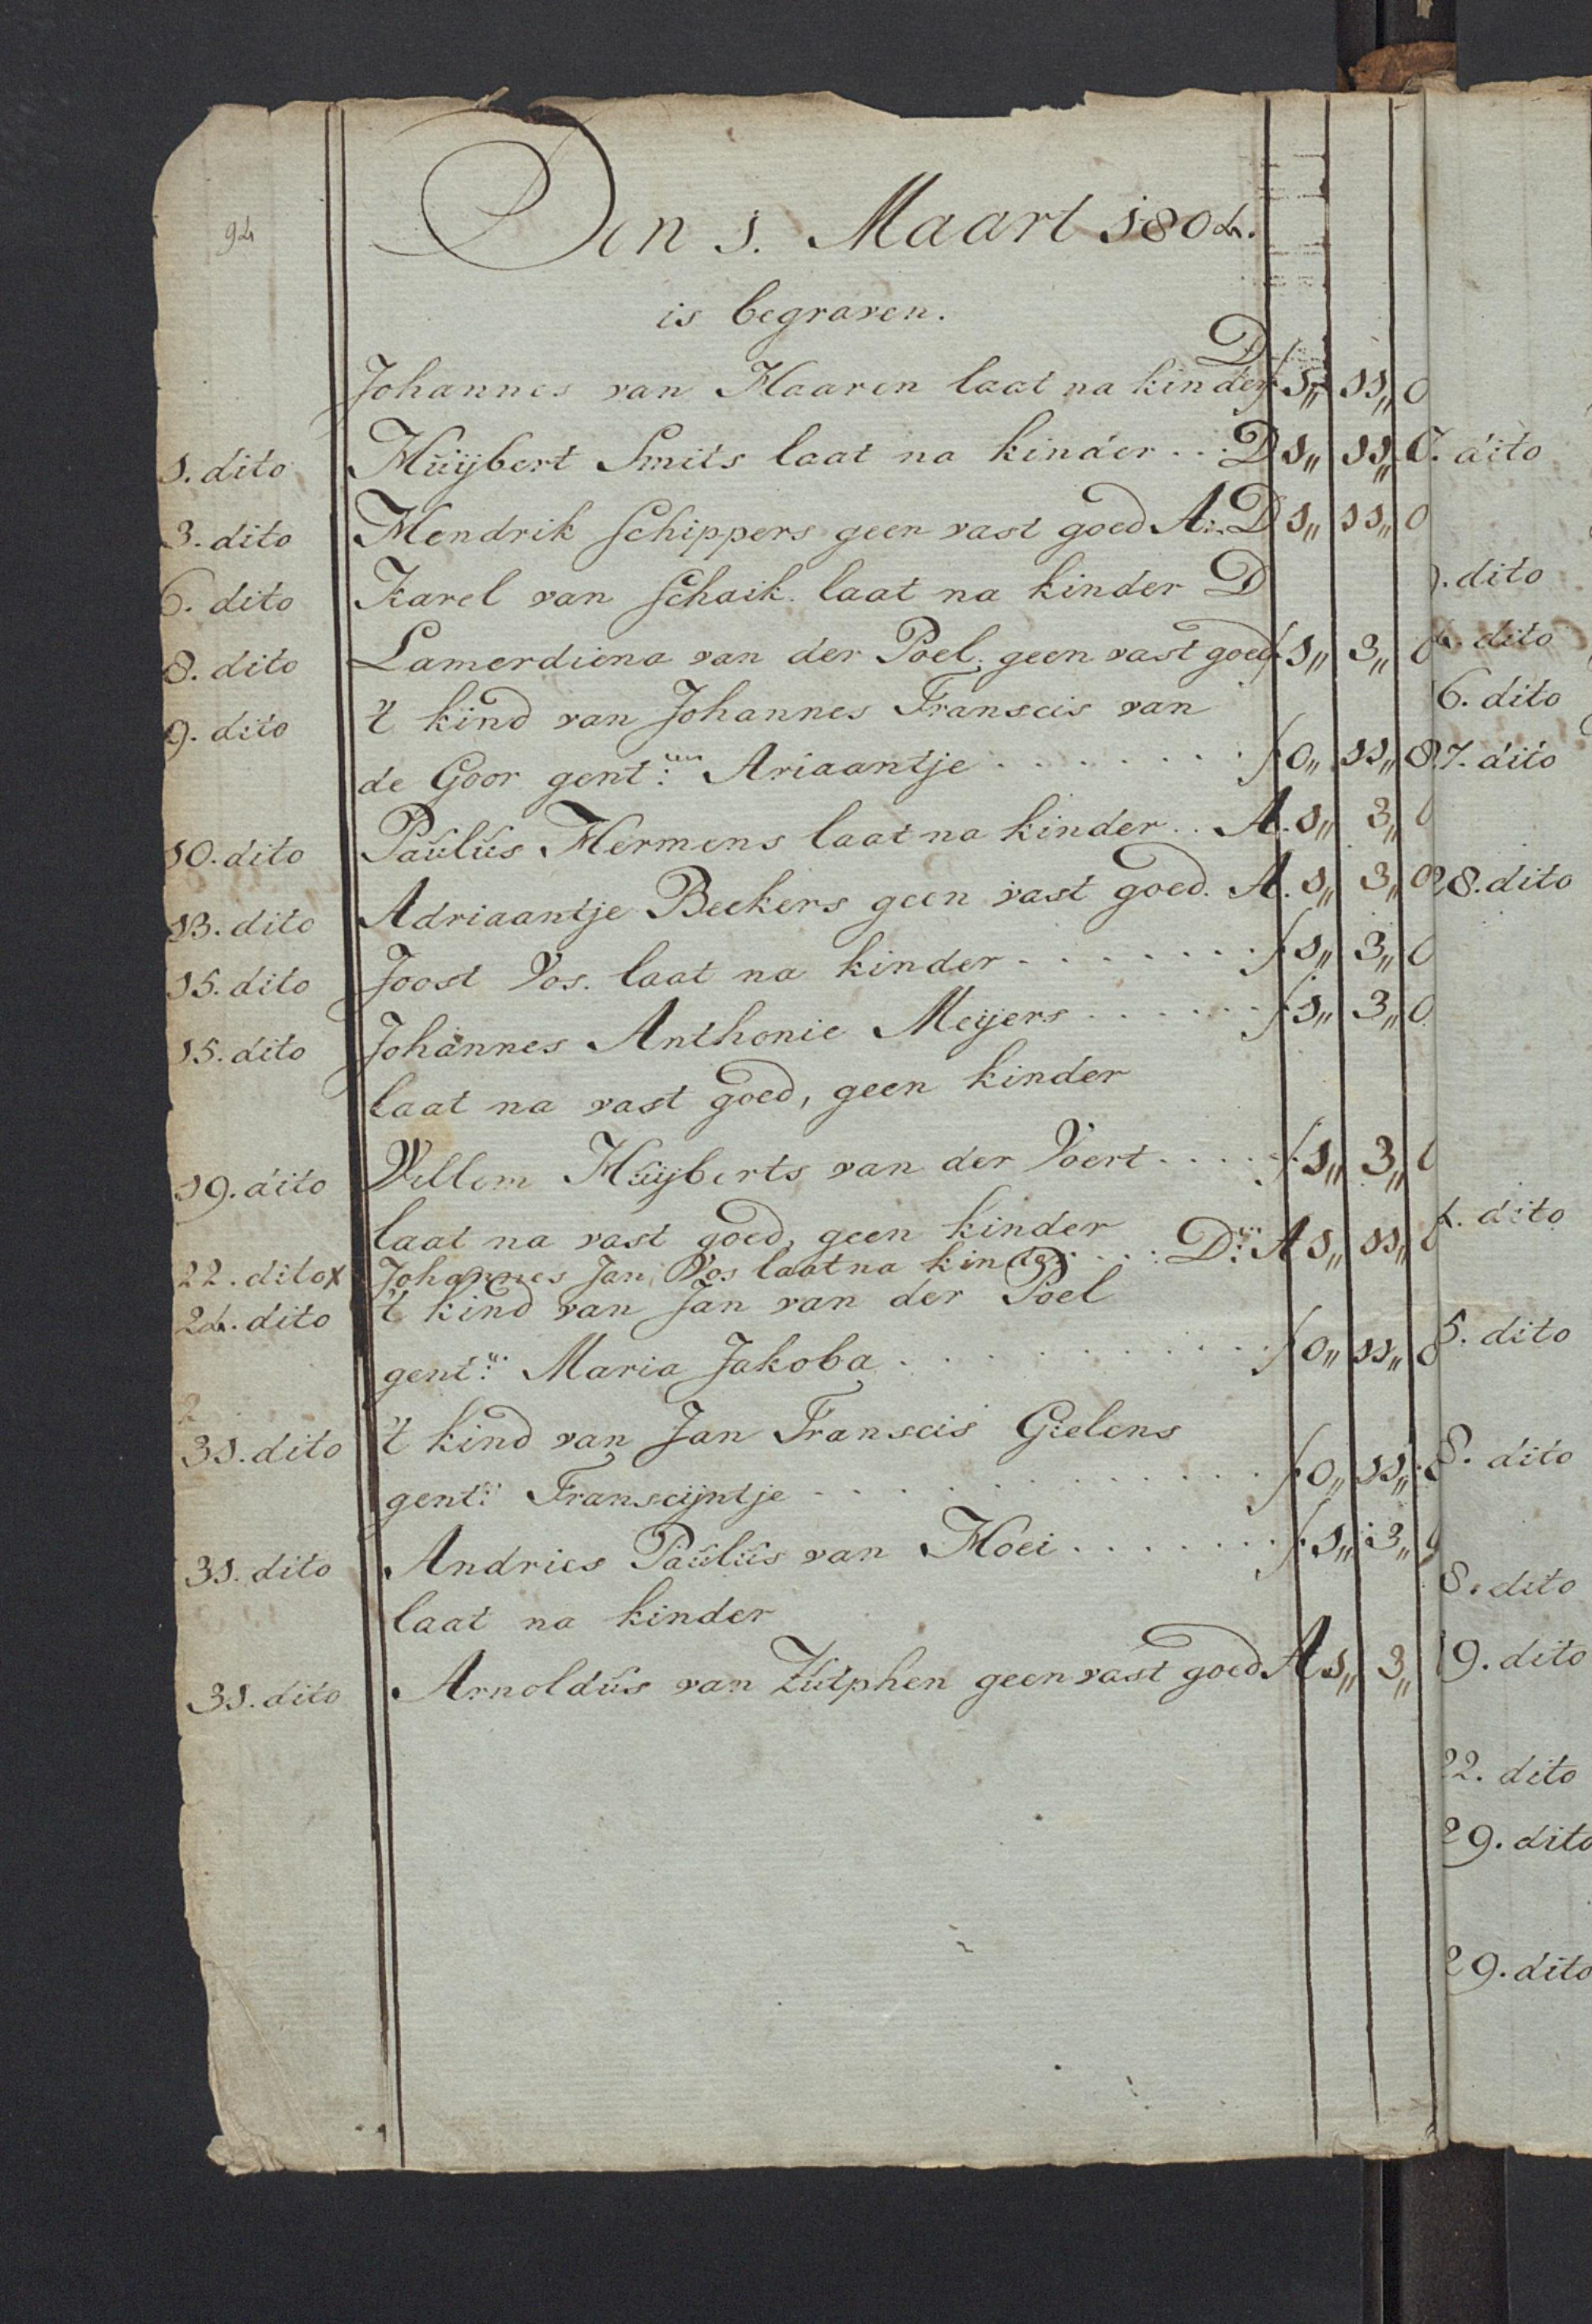 94
Den 1. Maart 1804.
is begraven.
Johannes van Haaren laat na kinder D f 1,, 11,, 0
1. dito Huijbert Smits laat na kinder . . . D 1,, 11,, 0
3. dito Hendrik Schippers geen vast goed A: D 1,, 11,, 0
6. dito Karel van Schaik. laat na kinder D
8. dito Lamerdiena van der Poel. geen vast goed f 1,, 3,, 0
9. dito 't kind van Johannes Franscis van
de Goor gent: Ariaantje . . . . . . . f 0,, 11,, 8
10. dito Paulus Hermens laat na kinder . . A. 1,, 3,, 0
13. dito Adriaantje Beekers geen vast goed. A. 1,, 3,, 0
15. dito Joost Vos. laat na kinder . . . . . . . f 1,, 3,, 0
15. dito Johannes Anthonie Meijers . . . . . . f 1,, 3,, 0
laat na vast goed, geen kinder
19. dito Willem Huijberts van der Voert . . . . f 1,, 3,, 0
laat na vast goed, geen kinder
22. dito x Johannes Jan Vos laat na kinder . . . : D: A 1,, 11,, 0
24. dito 't kind van Jan van der Poel
gent: Maria Jakoba . . . . . . . . . . . f 0,, 11,, 8
2
31. dito 't kind van Jan Franscis Gielens
gent: Franscijntje . . . . . . . . . . . . f 0,, 11,, 8
31. dito Andries Paulus van Hoei . . . . . . . f 1,, 3,, 0
laat na kinder
31. dito Arnoldus van Zutphen geen vast goed A 1,, 3,,
dito
dito
dito
6. dito
7. dito
28. dito
4. dito
5. dito
8. dito
8. dito
19. dito
22. dito
29. dito
29. dito